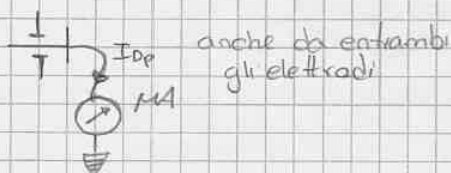 anche da entrambi
gli elettrodi
I_Dp
μA